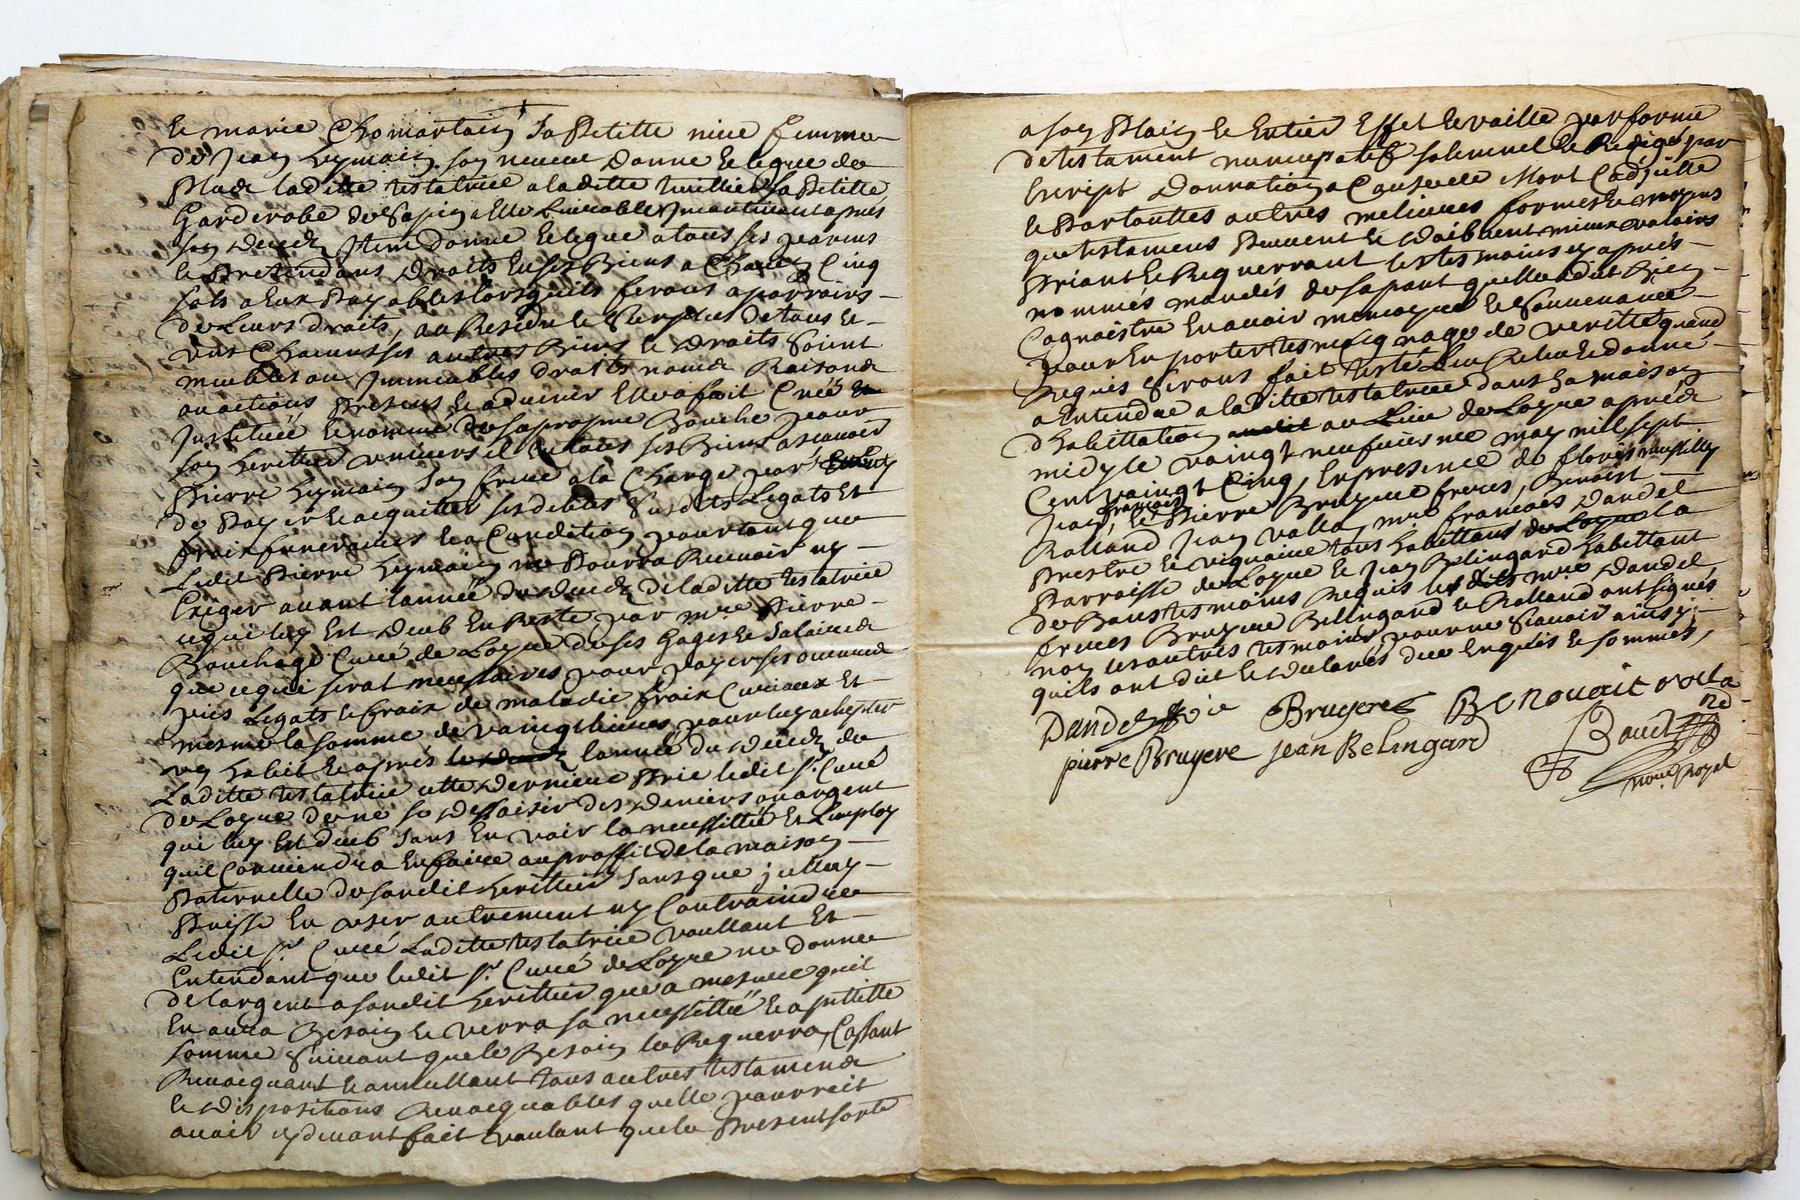 et marie Chomartain sa petitte niece femme
de Jean heymain son neveu donne et legue de
plus laditte testatrice a laditte sa petitte
Garderobe de sapin elle inmeable incontinant apres
son deceds Item donne et legue a tous ses parens
et pretendans droits en ses biens a chacun Cinq
sols a eux payables lorsquils feront aparroirs
de leurs droits, au Residu et surplus de tous et
uns chacuns ses autres biens et droits soient
meubles ou Immeubles droits noms Raisons
ou actions presens et advenir elle a fait Creé
Instituée et nomme de sa propre Bouche pour
son heritier universel en tous ses biens ascavoir
Pierre heymain son frere a la Charge par
de payer et acquitter ses debtes susdits Legats et
fraix funeraires et a Condition pourtant que
Ledit Pierre heymain ne pourra Recevoir ny
Exiger avant lannée du deceds de laditte testatrice
ce qui luy est deub en Reste par mre Pierre
Bouchage Curé de Loyre de ses Gages et salaires
que ce qui serat necessaires pour payer ses œuvres
pies Legats et fraix de maladie fraix Curiaux et
mesme la somme de vaingt livres pour luy achepter
un habit et apres lannée du deceds de
Laditte testatrice cette derniere prie ledit sr. Curé
de Loyre de ne se dessaisir des deniers ou argent
qui luy est deub sans en voir la necessittée et Lemploy
quil Conviendra en faire au proffit de la maison
Paternelle de sondit heritier sans que jcelluy
Puisse en user autrement ny Contraindre
Ledit sr. Curé Laditte testatrice voullant et
Entendant que ledit sr. Curé de Loyre ne donne
de largent a sondit heritier que a mesure quil
En aura Besoin et verra sa necessittée et a petitte
somme suivant que le Besoin le Requerra, Cassant
Revocquant et annullant tous autres testamens
et dispositions Revocquables quelle pourroit
avoir cy devant fait voulant que le present sorte
a son plain et entier Effet et vaille par forme
de testament nuncupatif solemnel et Redigé par
Escript donnation a Cause de Mort Codicille
et par touttes autres melieures formes et moyens
que testamens peuvent et doibvent mieux valoirs
priant et Requerrant les tesmoins cy après
nommés mandés de sa part quelle a dit Bien
Cognoistre en avoir memoyre et souvenance
pour en porter tesmoignage de veritté quand
Requis seront fait et donné
a Entendre a laditte testatrice dans sa maison
dhabittation au Lieu de Loyre apred
midy le vaingt neufuiesme may mil sept
Cent vaingt Cinq, En presence de
Jean francois et Pierre Bruyere freres, Benoist
Rolland Jean valla, mre francois Dandel
prestre et viquaire tous habittans de Loyre la
Parroisse de Loyre et Jean Belingard habittant
de Bans tesmoins Requis lesdits mre Dandel
freres Bruyere Bellingard et Rolland ont signés
non les autres tesmoins pour ne scavoir ainsy
quils ont dict et declarés de ce Enquis et sommés,
Dandel Bruyere BENOUAIT
pierre Bruyere jean Belingard
nore Royal